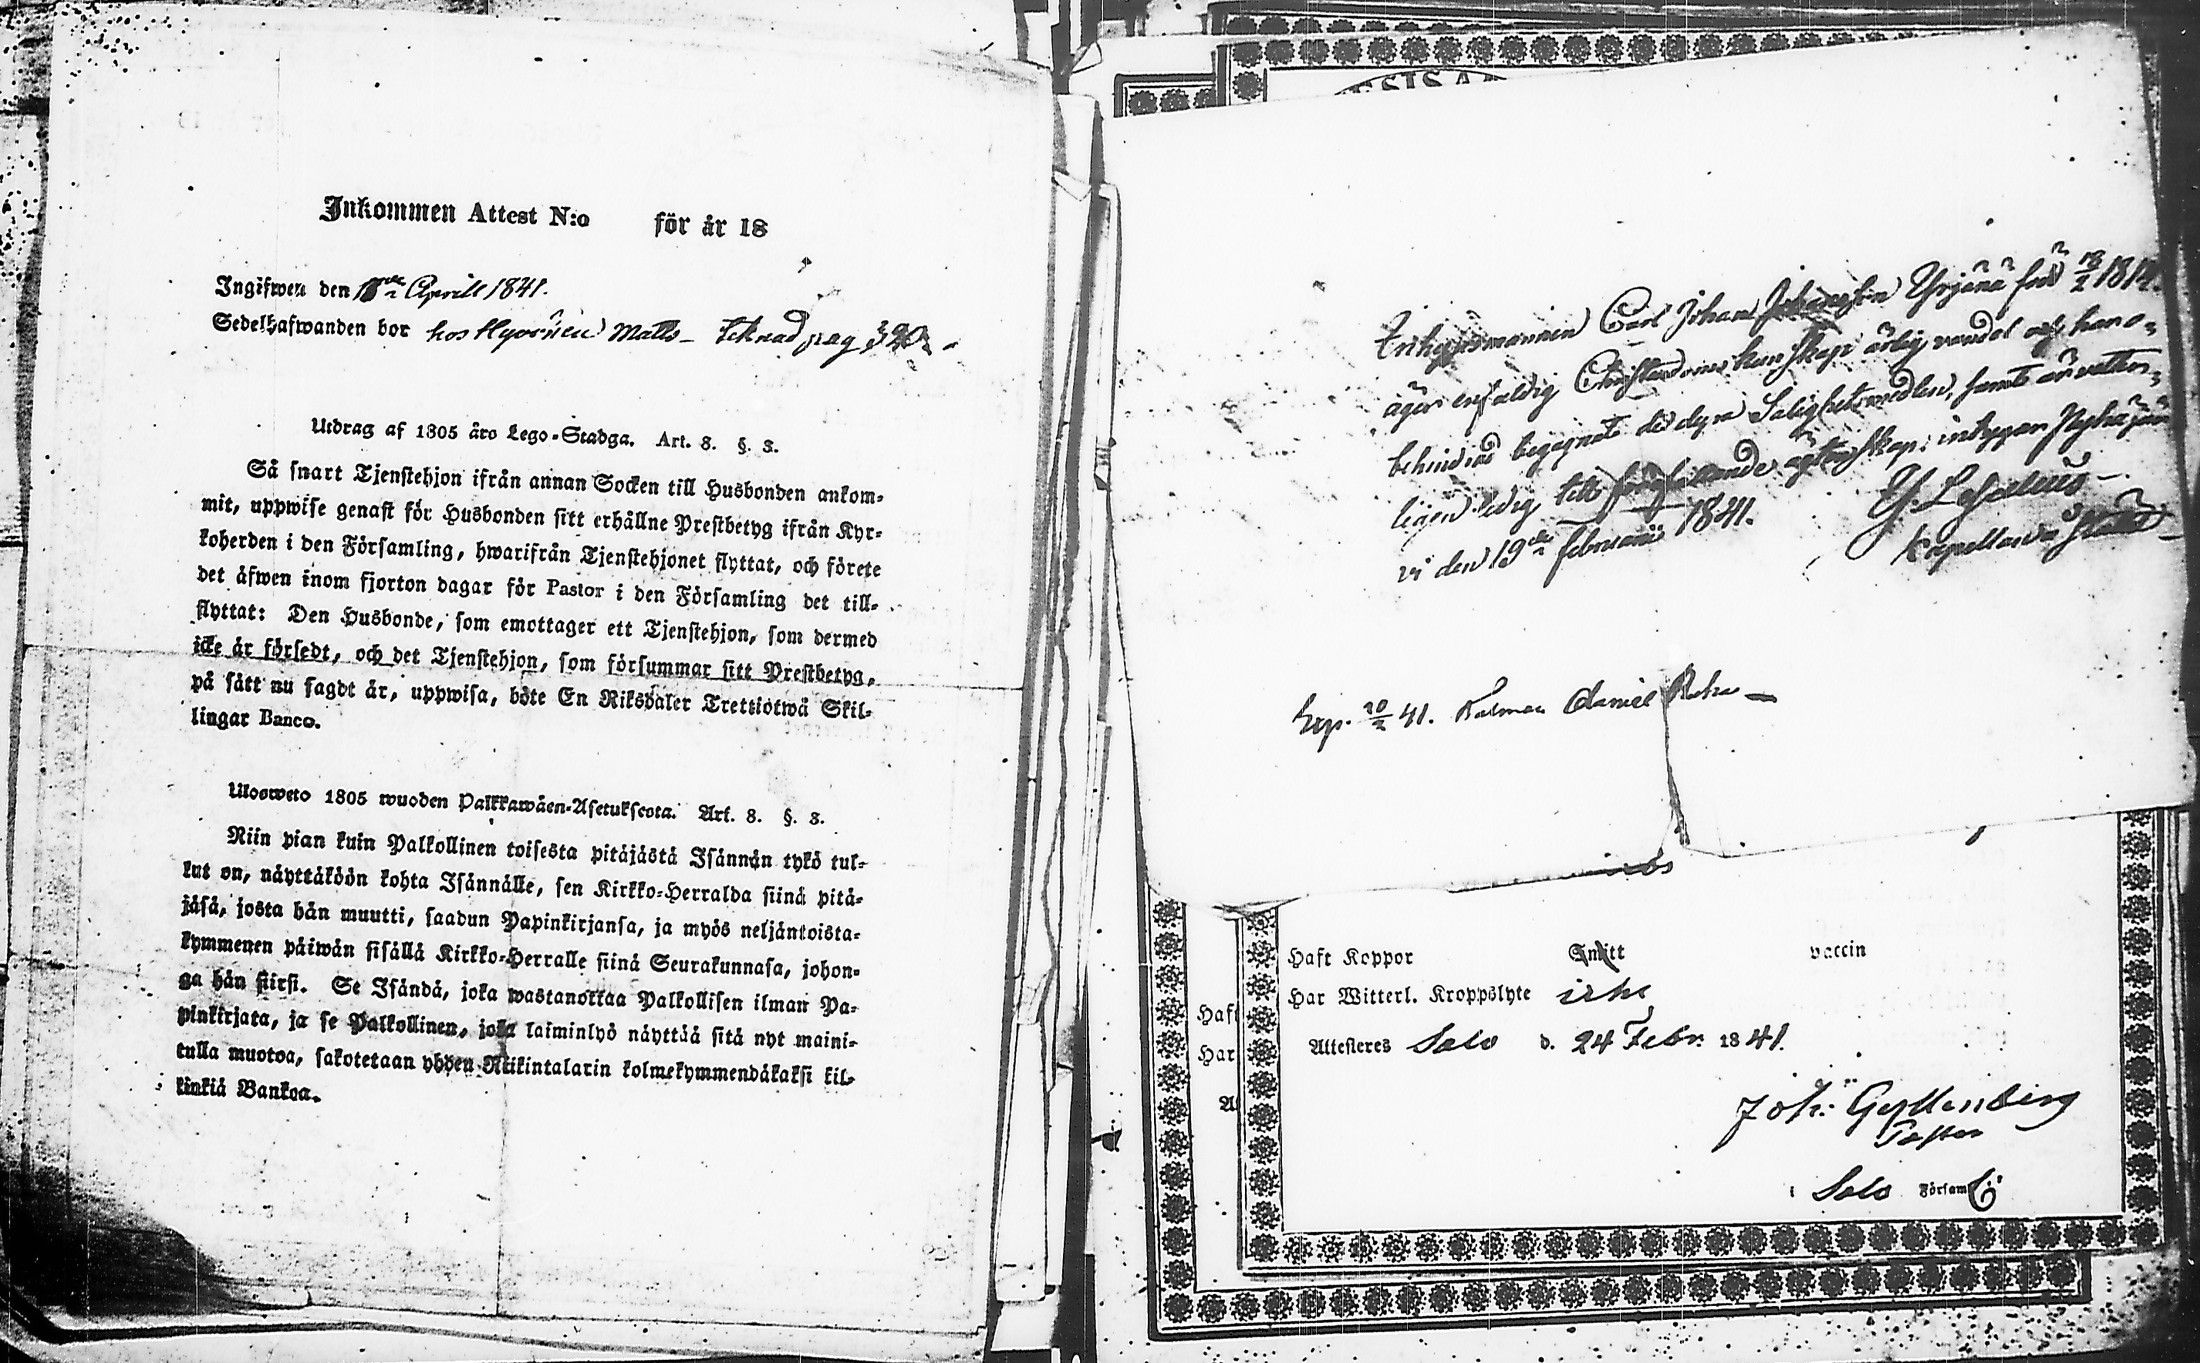 Inkommen Attest N:o för år 18
Ingifwen den 18de Aprill 1841.
Sedelhafwanden bor hos Hyvönen Matts – teknad pag 320
Utdrag af 1805 åro Lego-Stadga. Art. 8. §. 3.
Så snart Tjenstehjon ifrån annan Socken till Husbonden ankom-
mit, uppwise genast för Husbonden sitt erhållne Prestbetyg ifrån Kyr-
koherden i den Församling, hwarifrån Tjenstehjonet flyttat, och förete
det äfwen inom fjorton dagar för Pastor i den Församling det till-
flyttat: Den Husbonde, som emottager ett Tjenstehjon, som dermed
icke är försedt, och det Tjenstehjon, som försummar sitt Prestbetyg,
på sätt nu sagdt är, uppwisa, böte En Riksdaler Trettiotwå Skil-
lingar Banco.
Ulosweto 1805 wuoden Palkkawäen-Asetuksesta. Art. 8. §. 3.
Niin pian kuin Palkollinen toisesta pitäjästä Isännän tykö tul-
kut on, näyttäköön kohta Isännälle, sen Kirkko-Herralda siinä pitä-
jäsä, josta hän muutti, saadun Papinkirjansa, ja myös neljäntoista-
kymmenen päiwän sisällä Kirkko-Herralle siinä Seurakunnasa, johon-
ga hän siirsi. Se Isändä, joka wastanottaa Palkollisen ilman Pa-
pinkirjata, ja se Palkollinen, joka laiminlyö näyttää sitä nyt maini-
tulla muotoa, sakotetaan yhden Riikintalarin kolmekymmendäkaksi kil-
kinkiä Bankoa.
Inhysesmannen Carl Johan Johansson Yrjänä född 18/2 181
äger enfaldig Christendoms kunskap ärlig vandel och har o-
behindrad begagnat de dyra Salighetsmedlen, samt är vetter-
ligen ledig till äktenskap; intygar Pyhäjär
vi den 19de februarii 1841.
Kapellan
Exp. 20/2 41. Kalman Daniel
Haft Koppor Snitt vaccin
Har Witterl. Kroppslyte icke
Attesteres Salo d. 24 Febr. 1841.
Joh: Gyllenberg
Pastor
i Salo Församl
Haft
Har